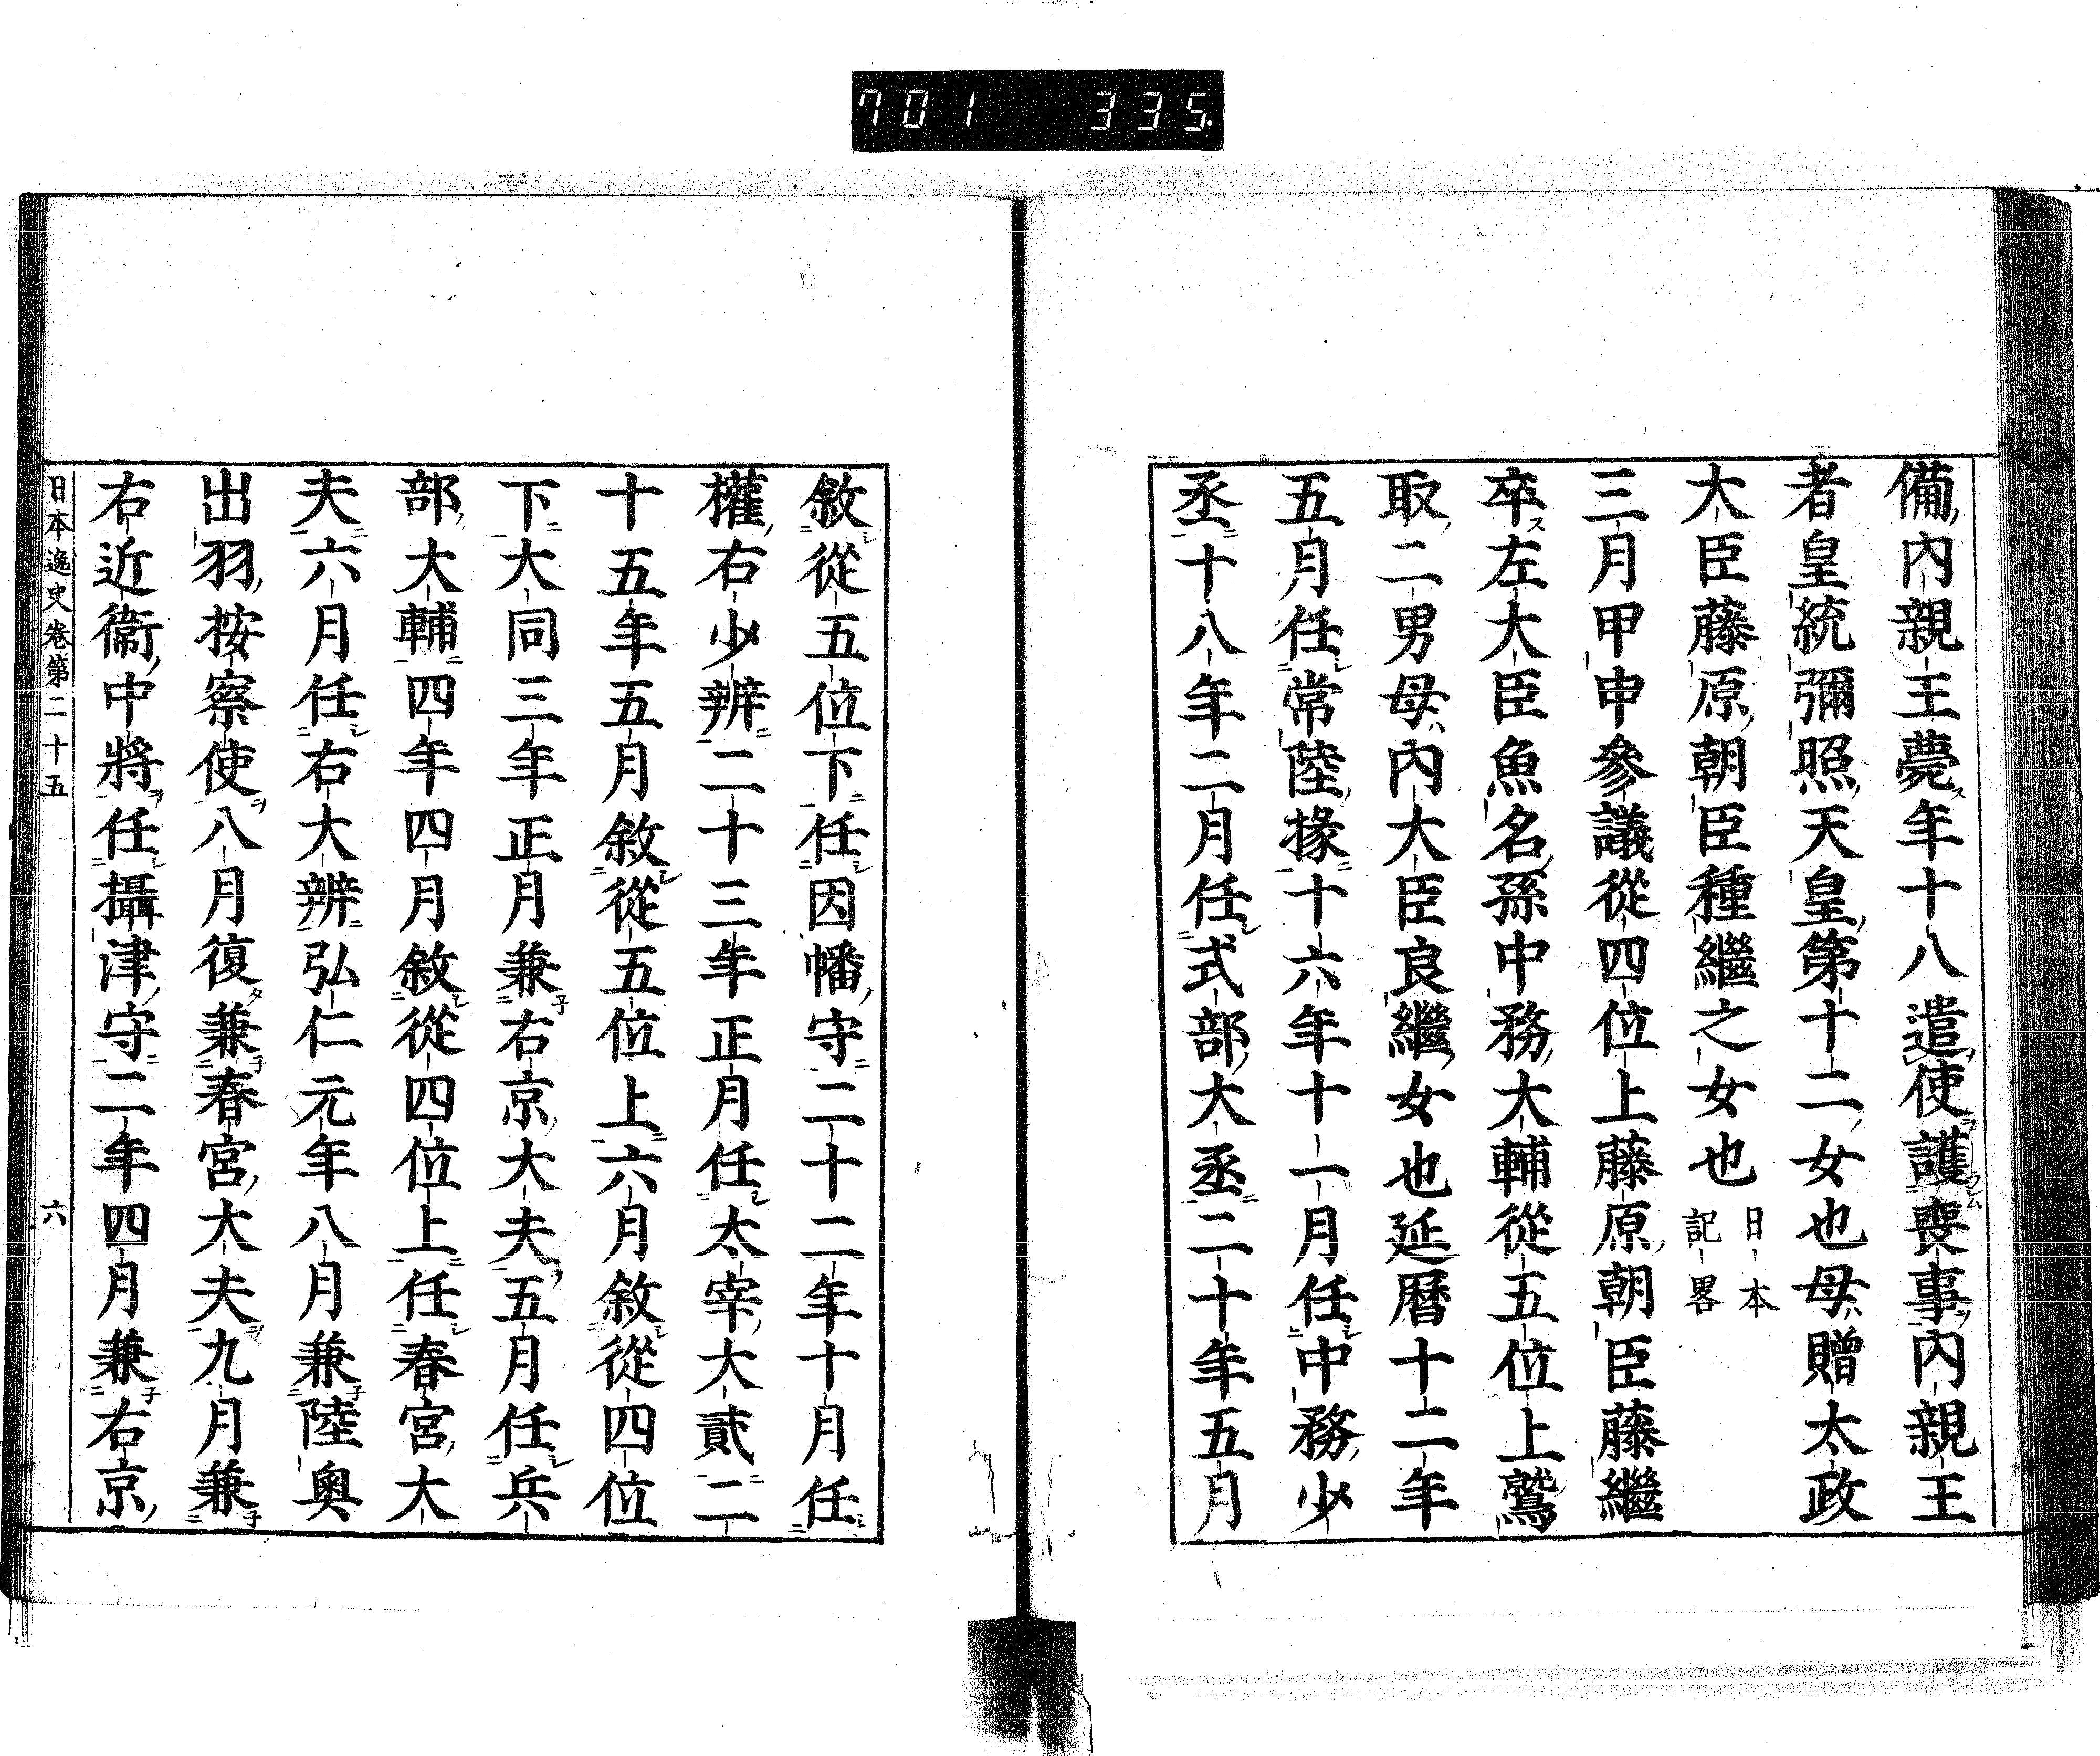 701 335.
備内親王薨年十八遣使護喪事内親王
者皇統彌照天皇第十二女也母贈太政
大臣藤原朝臣種繼之女也日本記畧
三月甲申參議從四位上藤原朝臣藤繼
卒左大臣魚名孫中務大輔從五位上鷲
取二男母内大臣良繼女也延曆十二年
五月任常陸掾十六年十一月任中務少
丞十八年二月任式部大丞二十年五月
敘從五位下任因幡守二十二年十月任
權右少辨二十三年正月任太宰大貳二
十五年五月敘從五位上六月敘從四位
下大同三年正月兼右京大夫五月任兵
部大輔四年四月敘從四位上任春宮大
夫六月任右大辨弘仁元年八月兼陸奥
出羽按察使八月復兼春宮大夫九月兼
右近衞中將任攝津守二年四月兼右京
日本逸史卷第二十五 六